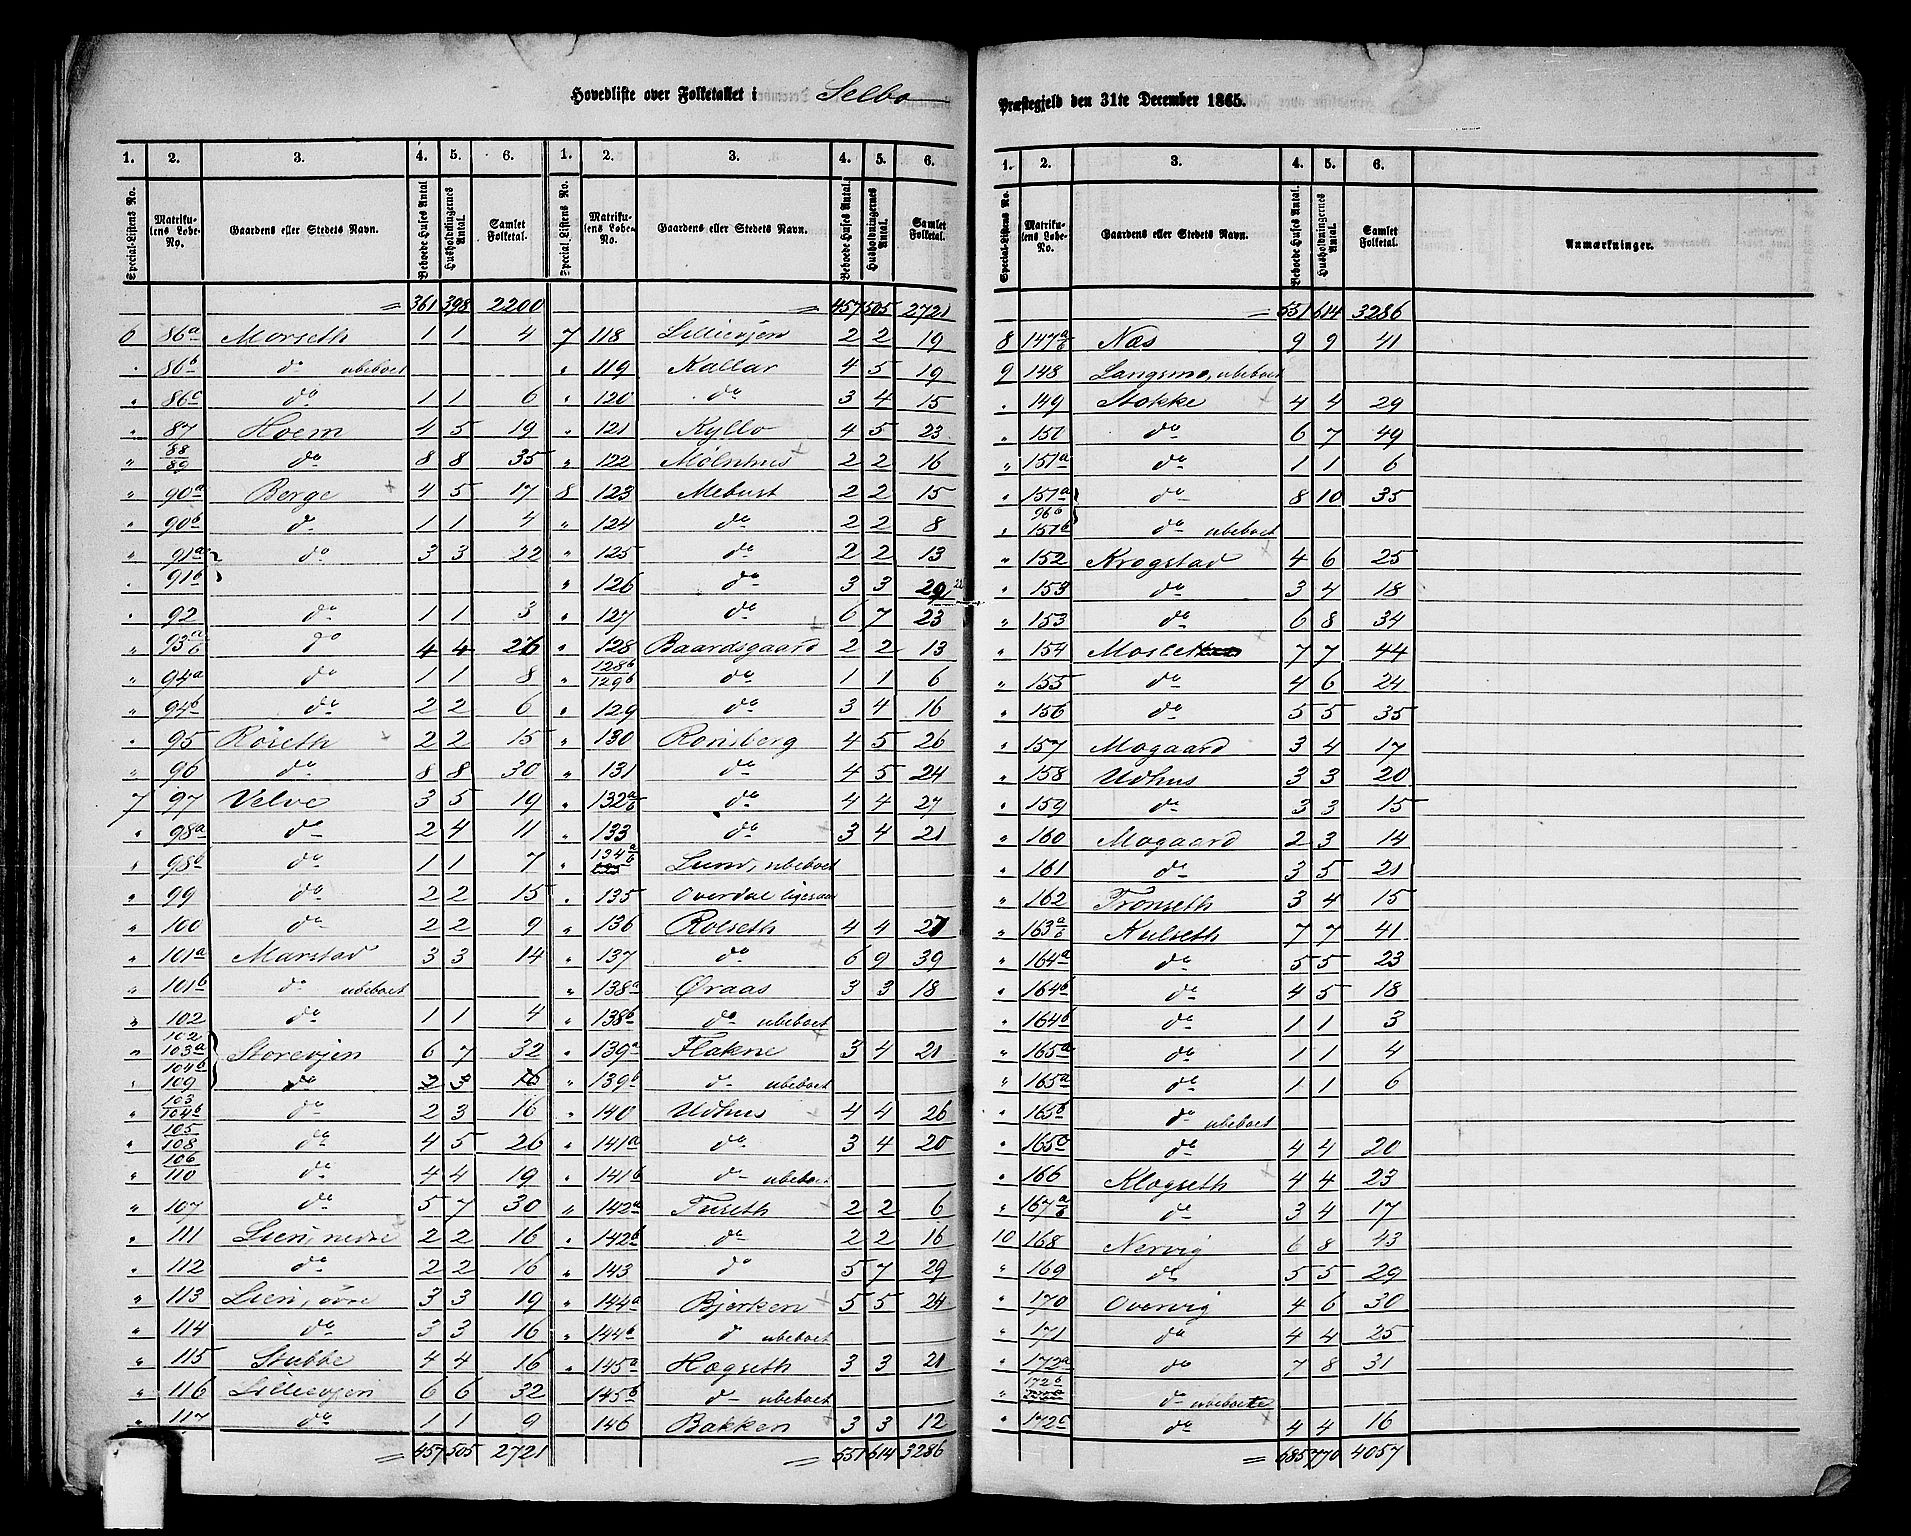 Hovedliste over Folketallet i Selbo Præstegjeld den 31te December 1865.
1. 2. 3. 4. 5. 6. 1. 2. 3. 4. 5. 6.
Special-Listens No. Matrikulens Løbe-No. Gaardens eller Stedets Navn. Beboede Huses Antal. Husholdningernes Antal. Samlet Folketal. Special-Listens No. Matrikulens Løbe-No. Gaardens eller Stedets Navn. Beboede Huses Antal. Husholdningernes Antal. Samlet Folketal.
= 361 398 2200 = 457 505 2721
6 86a Morseth 1 1 4 7 118 Lillievjen 2 2 19
" 86b do ubeboet " 119 Kallar 4 5 19
" 86c do 1 1 6 " 120 do 3 4 15
" 87 Hoem 4 5 19 " 121 Kyllo 4 5 23
" 88/89 do 8 8 35 " 122 Mølnhus 2 2 16
" 90a Berge 4 5 17 8 123 Mebust 2 2 15
" 90b do 1 1 4 " 124 do 2 2 8
" 91a do 3 3 22 " 125 do 2 2 13
" 91b " 126 do 3 3 20
" 92 do 1 1 3 " 127 do 6 7 23
" 93a/b do 4 4 26 " 128 Baardsgaard 2 2 13
" 94a do 1 1 8 " 128b/129b do 1 1 6
" 94b do 2 2 6 " 129 do 3 4 16
" 95 Röseth 2 2 15 " 130 Ronsberg 4 5 26
" 96 do 8 8 30 " 131 do 4 5 24
7 97 Velve 3 5 19 " 132a/b do 4 4 27
" 98a do 2 4 11 " 133 do 3 4 21
" 98b do 1 1 7 " 134a/b Lund, ubeboet
" 99 do 2 2 15 " 135 Overdal ligesaa
" 100 do 2 2 9 " 136 Rolseth 4 4 27
" 101a Marstad 3 3 14 " 137 do 6 9 39
" 101b do ubeboet " 138a Øraas 3 3 18
" 102 do 1 1 4 " 138b do ubeboet
" 102/103a Storevjen 6 7 32 " 139a Flakne 3 4 21
" 104b/109 do 2 3 16 " 139b do ubeboet
" 103/104b do 2 3 16 " 140 Udhus 4 4 26
" 105/108 do 4 5 26 " 141a do 3 4 20
" 106/110 do 4 4 19 " 141b do ubeboet
" 107 do 5 7 30 " 142a Fuseth 2 2 6
" 111 Lien, nedre 2 2 16 " 142b do 2 2 16
" 112 do 2 2 16 " 143 do 5 7 29
" 113 Lien, övre 3 3 19 " 144a Bjerken 5 5 24
" 114 do 3 3 16 " 144b do ubeboet
" 115 Stubbe 4 4 16 " 145a Hægseth 3 3 21
" 116 Lillievjen 6 6 32 " 145b do ubeboet
" 117 do 1 1 9 " 146 Bakken 3 3 12
= 457 505 2721 = 551 614 3286
1. 2. 3. 4. 5. 6.
Special-Listens No. Matrikulens Løbe-No. Gaardens eller Stedets Navn. Beboede Huses Antal. Husholdningernes Antal. Samlet Folketal. Anmærkninger.
= 551 614 3286
8 147a/b Næs 9 9 41
9 148 Langsmo, ubeboet
" 149 Stokke 4 4 29
" 150 do 6 7 49
" 151a do 1 1 6
" 151a do 8 10 35
" 96b/151b do ubeboet
" 152 Krogstad 4 6 25
" 153 do 3 4 18
" 153 do 6 8 34
" 154 Moslet 7 7 44
" 155 do 4 6 24
" 156 do 5 5 35
" 157 Mogaard 3 4 17
" 158 Udhus 3 3 20
" 159 do 3 3 15
" 160 Mogaard 2 3 14
" 161 do 3 5 21
" 162 Tronseth 3 4 15
" 163a/b Kulseth 7 7 41
" 164a do 5 5 23
" 164b do 4 5 18
" 164b do 1 1 3
" 165a do 1 1 4
" 165a do 1 1 6
" 165b do ubeboet
" 165a do 4 4 20
" 166 Klogseth 4 4 23
" 167a/b do 3 4 17
10 168 Nervig 6 8 43
" 169 do 5 5 29
" 170 Overvig 4 6 30
" 171 do 4 4 25
" 172a do 7 8 31
" 172b do ubeboete
" 172c do 4 4 16
= 685 770 4057